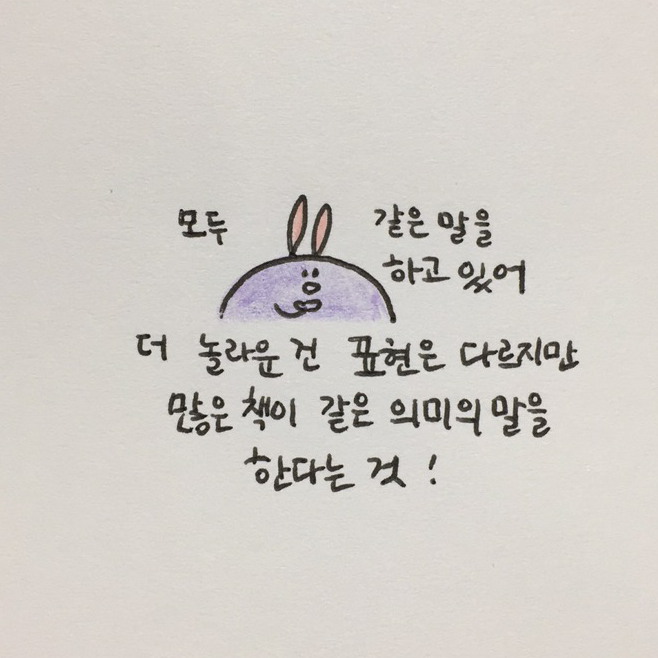 모두 같은 말을
하고 있어
더 놀라운 건 표현은 다르지만
많은 책이 같은 의미의 말을
한다는 것!